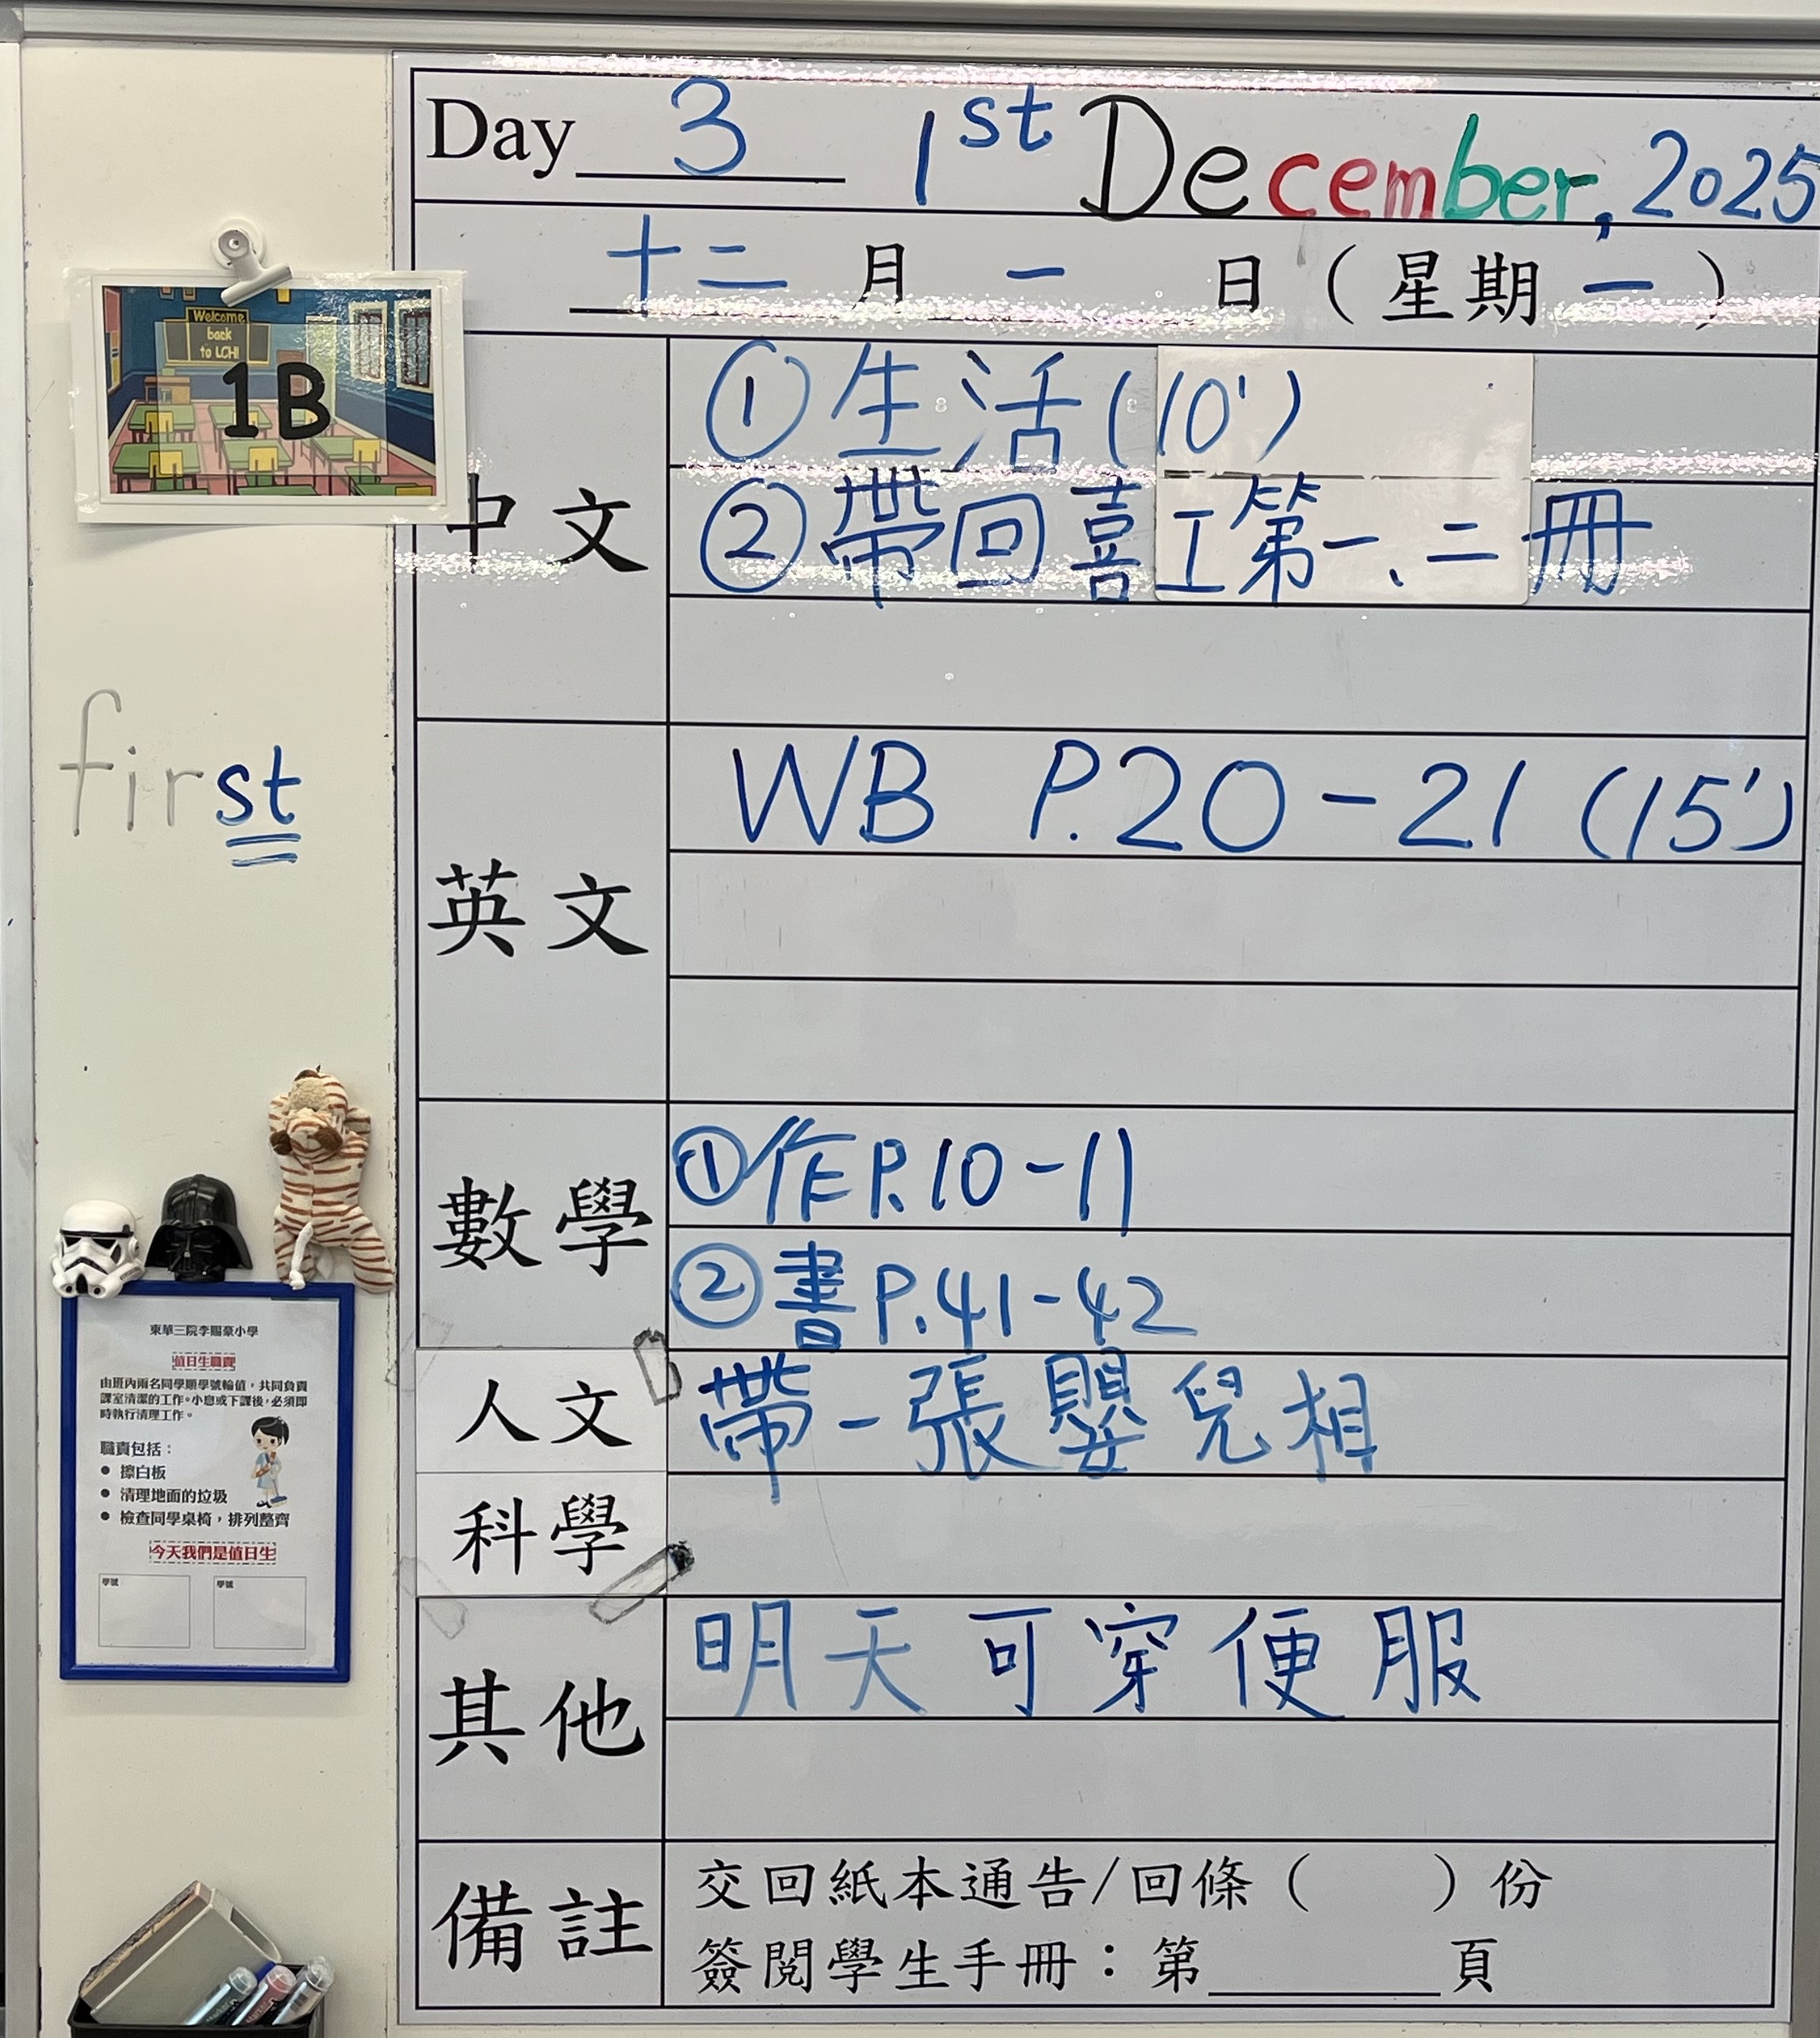 Day 3 1st December, 2025
十二 月 一 日 ( 星期 一 )
Welcome
back
to LCH!
1B
中文
① 生活 (10')
② 帶回喜工第一、二冊
first
英文
WB P.20-21 (15')
數學
① 作P.10-11
② 書P.41-42
人文
帶一張嬰兒相
科學
其他
明天可穿便服
備註
交回紙本通告/回條 ( ) 份
簽閱學生手冊：第______頁
東華三院李賜豪小學
值日生職責
由班內兩名同學順學號輪值，共同負責
課室清潔的工作。小息或下課後，必須即
時執行清理工作。
職責包括：
● 擦白板
● 清理地面的垃圾
● 檢查同學桌椅，排列整齊
今天我們是值日生
學號 學號